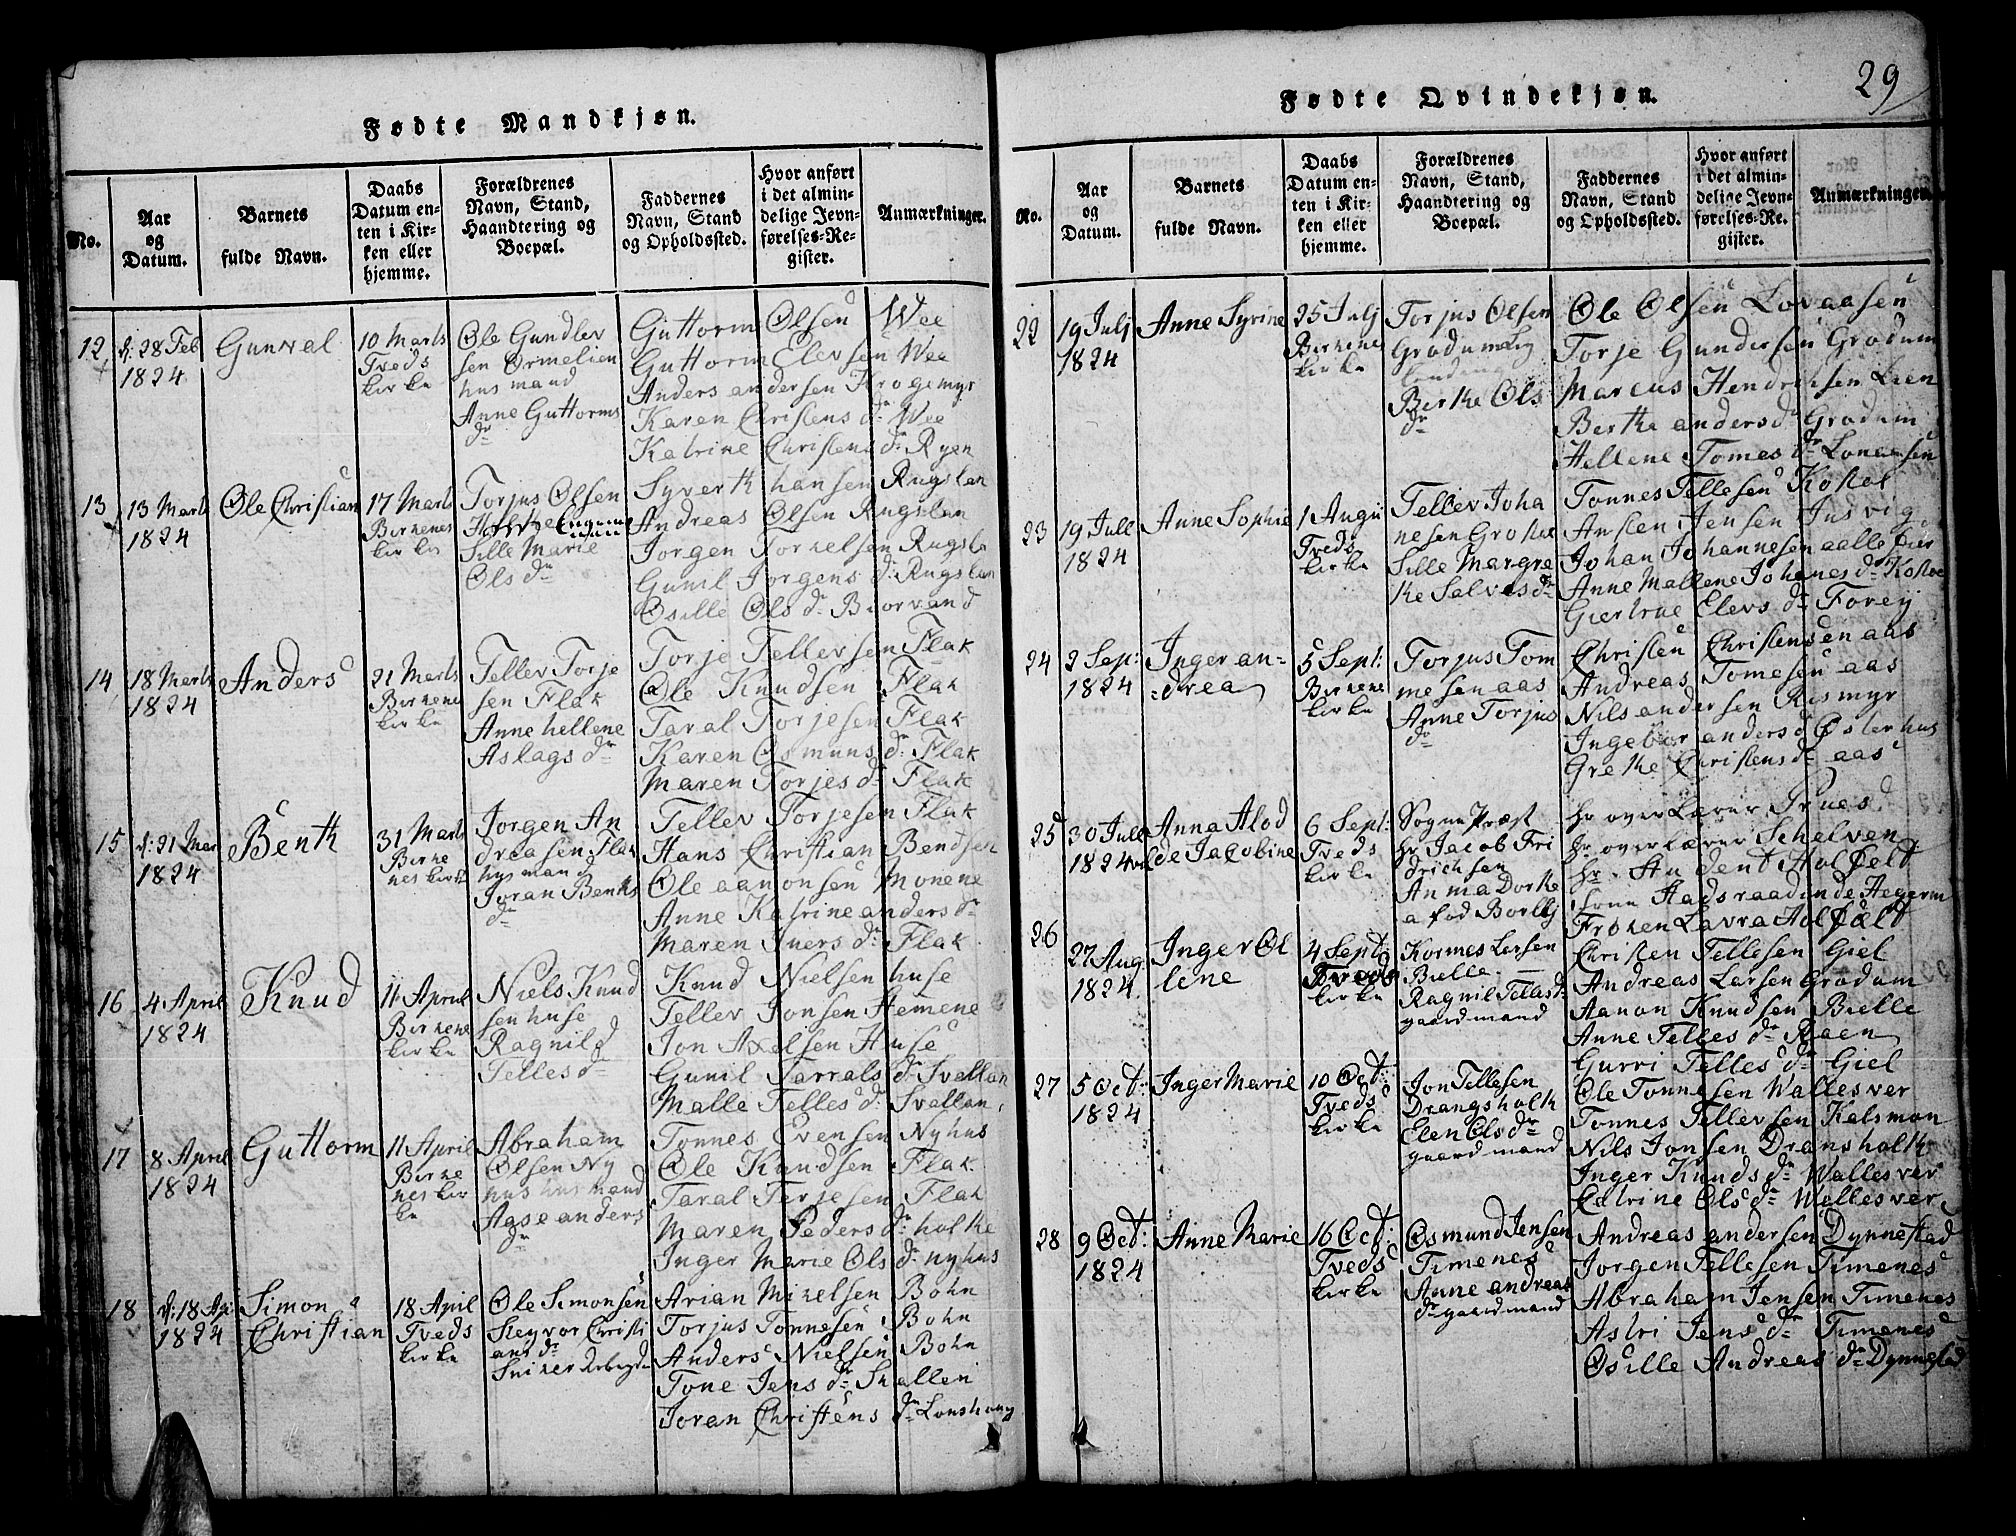 Fødte Mandkjøn.
No.
Aar og Datum.
Barnets fulde Navn.
Daabs Datum enten i Kirken eller hjemme.
Forældrenes Navn, Stand, Haandtering og Boepæl.
Faddernes Navn, Stand og Opholdssted.
Hvor anført i det almindelige Jevnførelses-Register.
Anmærkninger.
12
d: 28 Feb
1824
Gunval
10 Marts
Tveds
kirke
Ole Gundlev
sen Ormelien
husmand
Anne Guttorms
dr
Guttorm Olsen Wee
Guttorm Elevsen Wee
Anders andersen Krogemyr
Karen Christens dr Wee
Katrine Christens dr Ryen
13
13 Marts
1824
Ole Christian
17 Marts
Birkenes
kirke
Torjus Olsen
Sille Marie
Ols dr
Syvert hansen Rugslan
Andreas Olsen Rugslan
Jorgen Torkelsen Rugsla
Gunil Jorgens dr Rugslan
Osille Ols dr Biorvand
14
18 Marts
1824
Anders
21 Marts
Birkene
kirke
Tellev Torje
sen Flak
Anne hellene
Aslags dr
Torje Tellevsen Flak
Ole Knudsen Flak
Taral Torjesen Flak
Karen Osmuns dr Flak
Maren Torjes dr Flak
15
d: 21 Mar
1824
Benth
31 Marts
Birke
nes kirke
Jorgen An
dreasen Flak
husmand
Joran Benths
dr
Tellev Torjesen Flak
Hans Christian Bendsen
Ole aanonsen Monene
Anne Katrine anders dr
Maren Ivers dr Flak
16
4 April
1824
Knud
11 April
Birkene
kirke
Niels Knud
sen huse
Ragnild
Telles dr
Knud Nielsen huse
Tellev Jonsen Hemene
Jon Axelsen Huse
Gunil Tarrals dr Svellan
Malle Telles dr Svallan
17
8 April
1824
Guttorm
11 April
Birke
nes kir
ke
Abraham
Olsen Ny
hus husmand
Aase anders
dr
Tonnes Evensen Nyhus
Ole Knudsen Flak
Taral Terjesen Flak
Maren Peders dr holthe
Inger Marie Ols dr nyhus
18
d: 18 Ap:
1824
Simon
Christian
18 April
Tveds
kirke
Ole Simonsen
Sleyvor Christi
ans dr
Arian Mikelsen Bohn
Torjus Tonnesen Bohn
Anders Nielsen Bohn
Tone Jens dr
Joran Christens dr
Fødte Qvindekjøn.
29
No.
Aar og Datum.
Barnets fulde Navn.
Daabs Datum enten i Kirken eller hjemme.
Forældrenes Navn, Stand, Haandtering og Boepæl.
Faddernes Navn, Stand og Opholdssted.
Hvor anført i det almindelige Jevnførelses-Register.
Anmærkninger.
22
19 Julj
1824
Anne Syrine
25 Julj
Birkene
kirke
Torjus Olsen
Grodum
Berthe Ols
dr
Ole Olsen Lovaasen
Torje Gundersen Grodum
Marcus Hendrichsen Lien
Berthe anders dr Grodum
Hellene Tomes dr Lonaasen
23
19 Juli
1824
Anne Sophie
1 Augu
Tveds
kirke
Tellev Joha
nesen
Sille Margre
the Salves dr
Tonnes Tellesen
Ansten Jensen Jusvig
Johan Johannesen aallefier
Anne Mallene Johanes dr
Giertrue Elevs dr Forey
24
2 Sep:
1824
Inger an=
=drea
5 Sept:
Birkene
kirke
Torjus Tom
mesen aas
Anne Torjus
dr
Christen Christensen aas
Andreas Tomesen aas
Nils andersen Rismyr
Ingebor anders dr Østerhus
Grethe Christens dr aas
25
30 Juli
1824
Anna Alod
de Jacobine
6 Sept:
Tveds
kirke
Sogne Præst
hr Jacob Fri
drichsen
Anna Dorthe
a fød Borlbj
hr overlærer
hr overlærer Schelven
hr Student Holfeldt
Frøken Lavra Holfeldt
26
27 Aug
1824
Inger Ol
lene
4 Sept
Tveds
kirke
Kormes Larsen
Bielle
Ragnil
gaardmand
Christen Tellesen Giel
Andreas Larsen Grodum
Aanon Knudsen Bielle
Anne Telles dr Raen
Gurri Telles dr Giel
27
5 Oct:
1824
Inger Marie
10 Oct:
Tveds
kirke
Jon Tellesen
Drangsholth
Elen Ols dr
gaardmand
Ole Tonnesen Wallesver
Tonnes Tellevsen Kalsmon
Nils Jonsen Dransholth
Inger Knuds dr Wallesver
Catrine Ols dr Wallesver
28
9 Oct:
1824
Anne Marie
16 Oct:
Tveds
kirke
Osmund Jensen
Timenes
Anne andreas
dr gaardmand
Andreas andersen Dynnestad
Jorgen Tellesen Timenes
Abraham Jensen Timenes
Astri Jens dr Timenes
Osille Andreas dr Dynnestad